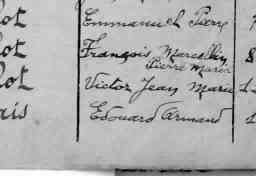 ot Emmanuel Pierre
ot François Marcellin 8
Pierre Marie
ot Victor Jean Marie 1
ais Edouard Armand 1